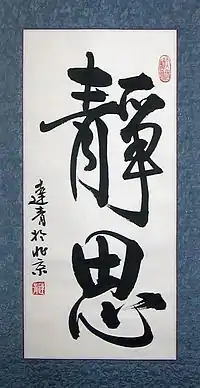 靜思
達青於北京